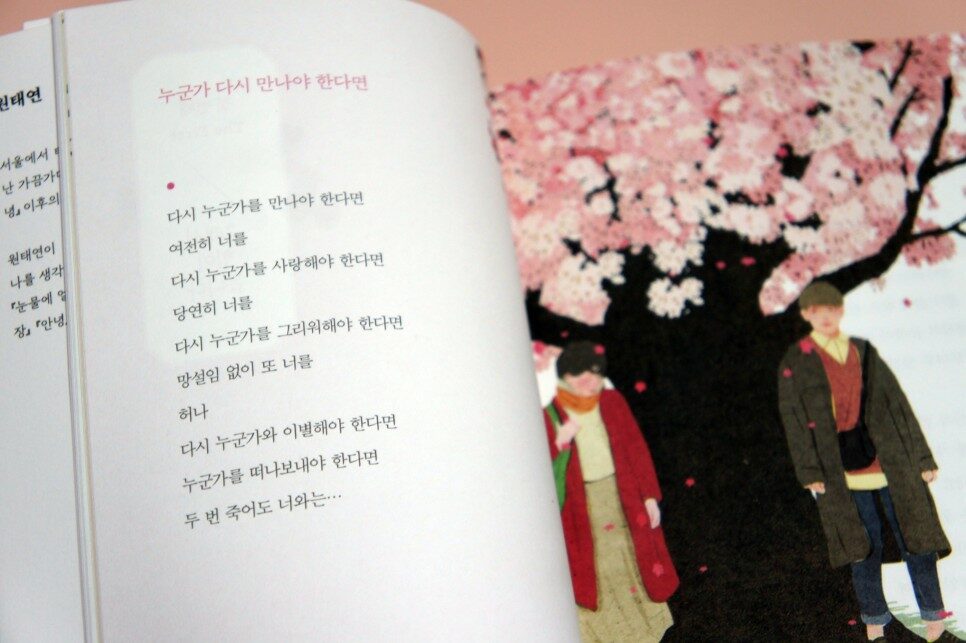 원태연
서울에서
난 가끔가
녕』 이후의
원태연이
나를 생각
『눈물에
장』 『안녕
누군가 다시 만나야 한다면
다시 누군가를 만나야 한다면
여전히 너를
다시 누군가를 사랑해야 한다면
당연히 너를
다시 누군가를 그리워해야 한다면
망설임 없이 또 너를
허나
다시 누군가와 이별해야 한다면
누군가를 떠나보내야 한다면
두 번 죽어도 너와는…